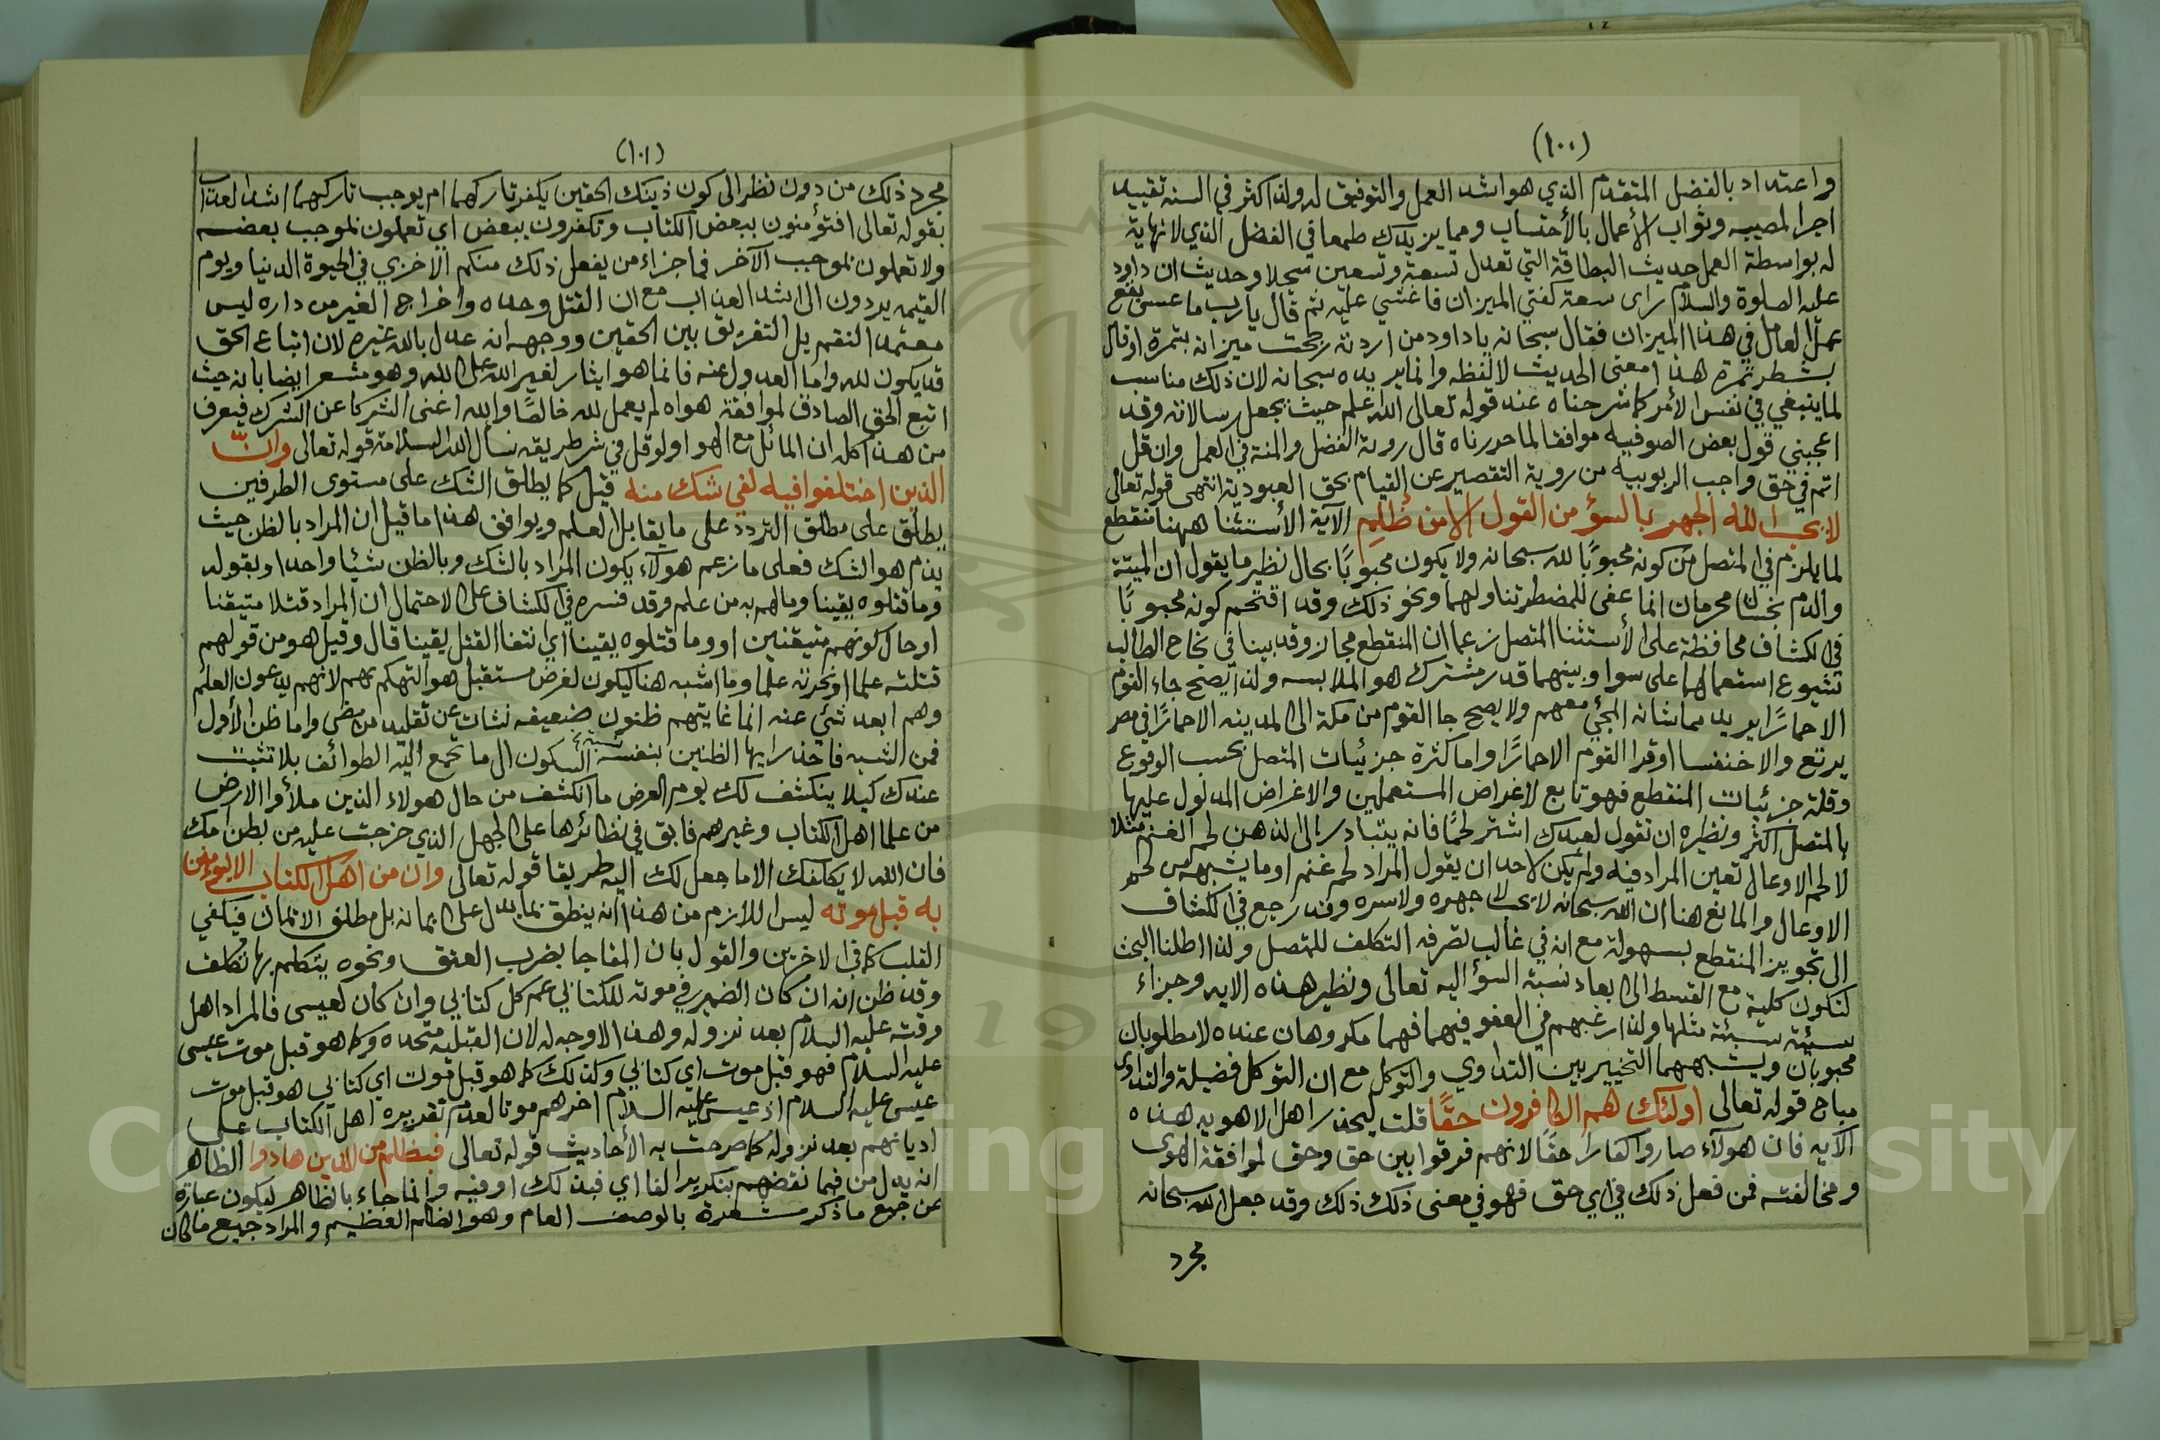 (١٠٠)
واعتداد بالفضل المتقدم الذي هو اشد العمل والتوفيق له ولذا كثر في السنه تقييد
اجر المصيبه وثواب الأعمال بالأحتساب ومما يزيدك طمعا في الفضل الذي لا نهاية
له بواسطة العمل حديث البطاقة التي تعدل تسعة وتسعين سجلا وحديث ان داود
عليه الصلوة والسلام راى سعة كفتي الميزان فاغشي عليه ثم قال يا رب ما عسى يقع
عمل العامل في هذا الميزان فقال سبحانه يا داود من اردته رجحت ميزانه بتمرة او قال
بشطر تمرة هذا معنى الحديث لا لفظه وانما يريده سبحانه لان ذلك مناسب
لما ينبغي في نفس الأمر كما شرحناه عند قوله تعالى الله اعلم حيث يجعل رسالاته وقد
اعجبني قول بعض الصوفيه موافقا لما حررناه قال روية الفضل والمنة في العمل وان قل
اتم في حق واجب الربوبيه من روية التقصير عن القيام بحق العبودية انتهى قوله تعالى
لا يحب الله الجهر بالسؤ من القول الا من ظُلِم الآية الأستثنا ههنا منقطع
لما يلزم في المتصل من كونه محبوبًا لله سبحانه ولا يكون محبوبًا بحال نظير ما يقول ان الميتة
والدم نجسان محرمان انما عفى للمضطر تناولهما ونحو ذلك وقد اقتحم كونه محبوبًا
في الكشاف محافظة على الأستثنا المتصل زعما ان المنقطع مجاز وقد بينا في نجاح الطالب
شيوع استعمالهما على سوا وبينهما قدر مشترك هو الملابسه ولذا يصح جاء القوم
الا حمارًا يريد مما شانه المجئ معهم ولا يصح جا القوم من مكة الى المدينه الا حمارًا في مصر
يرتع والا خنفسا او قرا القوم الا حمارًا واما كثرة جزئيات المتصل بحسب الوقوع
وقلة جزئيات المنقطع فهو تابع لاغراض المستعملين والاغراض المدلول عليها
بالمتصل اكثر ونظيره ان تقول لعبدك اشتر لحمًا فانه يتبادر الى الذهن لحم الغنم مثلا
لا لحم الاوعال تعين المراد فيه ولم يكن لاحد ان يقول المراد لحم غنم او ما يشبهه من لحم
الاوعال والمانع هنا ان الله سبحانه لا يحب جهره ولا سره وقد رجع في الكشاف
الى تجويز المنقطع بسهولة مع انه في غالب تصرفه التكلف للمتصل ولذا اطلنا البحث
لتكون كلية مع القسط الى ابعاد نسبة السؤ اليه تعالى ونظير هذه الايه وجزاء
سيئة سيئة مثلها ولذا رغبهم في العفو فيهما فهما مكروهان عنده لا مطلوبان
محبوبان ويشبههما التخيير بين التداوي والتوكل مع ان التوكل فضيلة والتداوى
مباح قوله تعالى اولئك هم الكافرون حقًا قلت ليحذر اهل الاهويه هذه
الآيه فان هولآء صاروا كفارا حقًا لانهم فرقوا بين حق وحق لموافقة الهوى
ومخالفته فمن فعل ذلك في اي حق فهو في معنى ذلك ذلك وقد جعل الله سبحانه
مجرد
(١٠١)
مجرد ذلك من دون نظر الى كون ذينك الحقين يكفر تاركهما ام يوجب تاركهما اشد العذاب
بقوله تعالى افتؤمنون ببعض الكتاب وتكفرون ببعض اي تعملون بموجب بعضه
ولا تعملون بموجب الآخر فما جزاء من يفعل ذلك منكم الا خزي في الحيوة الدنيا ويوم
القيمه يردون الى اشد العذاب مع ان القتل وحده واخراج الغير من داره ليس
معتمد النقم بل التفريق بين الحقين ووجهه انه عدل بالله غيره لان اتباع الحق
قد يكون لله واما العدول عنه فانما هو ايثار لغير الله على الله وهو مشعر ايضا بانه حيث
اتبع الحق الصادق لموافقة هواه لم يعمل لله خالصًا والله اغنى الشركا عن الشرك فيعرف
من هذا كله ان المائل مع الهوا ولو قل في شر طريقه نسأل الله السلامة قوله تعالى وانّ
الذين اختلفوا فيه لفي شك منه قيل كما يطلق الشك على مستوى الطرفين
يطلق على مطلق التردد على ما يقابل العلم ويوافق هذا ما قيل ان المراد بالظن حيث
يذم هو الشك فعلى ما زعم هولآء يكون المراد بالشك وبالظن شيئا واحدا وبقوله
وما قتلوه يقينا وما لهم به من علم وقد فسره في الكشاف على الاحتمال ان المراد قتلا متيقنا
او حال كونهم متيقنين او وما قتلوه يقينا اي انتفا القتل يقينا قال وقيل هو من قولهم
قتلته علما ونحرته علما وما اشبه هنا كيكون لغرض مستقبل هو التهكم بهم لانهم يدعون العلم
وهم ابعد شئ عنه انما غايتهم ظنون ضعيفه نشات عن تقليد من مضى واما ظن الأول
فمن الشبه فاحذر ايها الظنين بنفسه السكون الى ما تجمع اليه الطوائف بلا تثبت
عندك كيلا ينكشف لك يوم العرض ما انكشف من حال هولاء الذين ملأوا الارض
من علما اهل الكتاب وغيرهم فابق في نظائرها على الجهل الذي خرجت عليه من بطن امك
فان الله لا يكلفك الا ما جعل لك اليه طريقا قوله تعالى وان من اهل الكتاب الا ليؤمنن
به قبل موته ليس اللازم من هذا انه ينطق بما يدل على ايمانه بل مطلق الايمان فيكفي
القلب كما في الاخرين والقول بان المفاجا بضرب العنق ونحوه يتكلم بها تكلف
وقد ظن انه ان كان الضمير في موته للكتابي عم كل كتابي وان كان لعيسى فالمراد اهل
وقته عليه السلام بعد نزوله وهذا لا وجه له لان القبليه متحده وكما هو قبل موت عيسى
عليه السلام فهو قبل موت اي كتابي وكذلك كما هو قبل موت اي كتابي هو قبل موت
عيسى عليه السلام اذ عيسى عليه السلام اخرهم موتا لعدم تقريره اهل الكتاب على
اديانهم بعد نزوله كما صرحت به الأحاديث قوله تعالى فبظلم من الذين هادوا الظاهر
انه بدل من فبما نقضهم بتكرير الفا اي فبذلك اوفيه وانما جاء بالظاهر ليكون عبارة
عن جميع ما ذكر مشعرة بالوصف العام وهو الظلم العظيم والمراد جميع ما كان